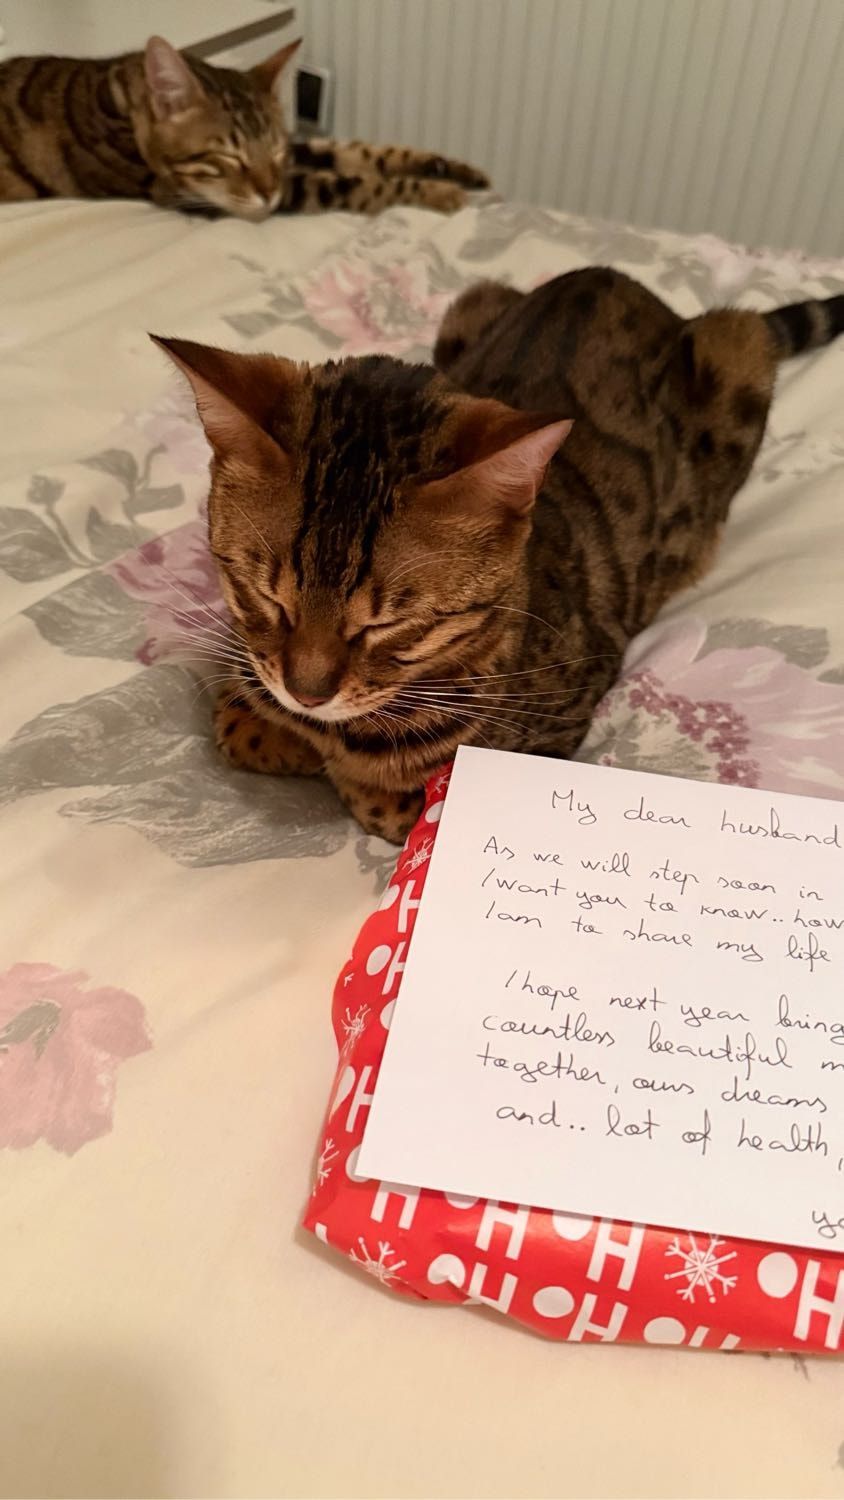 My dear husband
As we will step soon in
I want you to know.. how
I am to share my life
I hope next year bring
countless beautiful m
together, ours dreams
and.. lot of health,
yo
HO HO
HO
HO
HO HO HO HO
HO HO HO